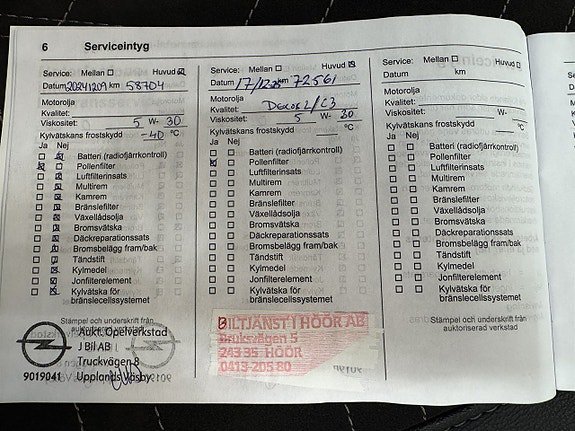 6 Serviceintyg
Service: Mellan Huvud
Datum 20241209 km 58704
Motorolja
Kvalitet:
Viskositet: 5 W- 30
Kylvätskans frostskydd -40 °C
Ja Nej
Batteri (radiofjärrkontroll)
Pollenfilter
Luftfilterinsats
Multirem
Kamrem
Bränslefilter
Växellådsolja
Bromsvätska
Däckreparationssats
Bromsbelägg fram/bak
Tändstift
Kylmedel
Jonfilterelement
Kylvätska för
bränslecellssystemet
Stämpel och underskrift från
auktoriserad verkstad
Aukt. Opelverkstad
J Bil AB
Truckvägen 8
9019041 Upplands Väsby
Service: Mellan Huvud
Datum 17/12 25 km 72561
Motorolja
Kvalitet: Dexos 2/C3
Viskositet: 5 W- 30
Kylvätskans frostskydd °C
Ja Nej
Batteri (radiofjärrkontroll)
Pollenfilter
Luftfilterinsats
Multirem
Kamrem
Bränslefilter
Växellådsolja
Bromsvätska
Däckreparationssats
Bromsbelägg fram/bak
Tändstift
Kylmedel
Jonfilterelement
Kylvätska för
bränslecellssystemet
BILTJÄNST I HÖÖR AB
Bruksvägen 5
243 35 HÖÖR
0413-205 80
Service: Mellan Huvud
Datum km
Motorolja
Kvalitet:
Viskositet: W-
Kylvätskans frostskydd °C
Ja Nej
Batteri (radiofjärrkontroll)
Pollenfilter
Luftfilterinsats
Multirem
Kamrem
Bränslefilter
Växellådsolja
Bromsvätska
Däckreparationssats
Bromsbelägg fram/bak
Tändstift
Kylmedel
Jonfilterelement
Kylvätska för
bränslecellssystemet
Stämpel och underskrift från
auktoriserad verkstad